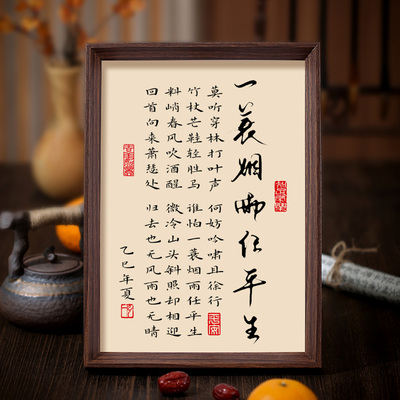 一蓑烟雨任平生
莫听穿林打叶声 何妨吟啸且徐行
竹杖芒鞋轻胜马 谁怕一蓑烟雨任平生
料峭春风吹酒醒 微冷山头斜照却相迎
回首向来萧瑟处 归去也无风雨也无晴
乙巳年夏